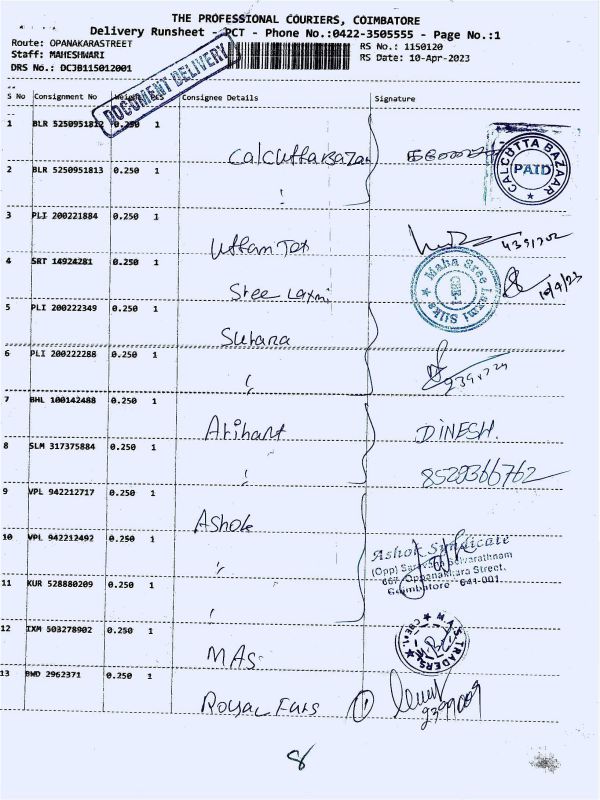 THE PROFESSIONAL COURIERS, COIMBATORE
Delivery Runsheet - PCT - Phone No.:0422-3505555 - Page No.:1
Route: OPANAKARASTREET
RS No.: 1150120
Staff: MAHESHWARI
RS Date: 10-Apr-2023
DRS No.: DCJB115012001
DOCUMENT DELIVERY
S No Consignment No Weight Pcs Consignee Details Signature
1 BLR 5250951812 0.250 1 Calcutta Bazaar
CALCUTTA BAZAAR
PAID
2 BLR 5250951813 0.250 1 "
3 PLI 200221884 0.250 1 Uttam Tex
4 SRT 14924281 0.250 1 Sree Laxmi
Maha Sree Laxmi Silks
CBE-1
10/4/23
5 PLI 200222349 0.250 1 Sutara
6 PLI 200222288 0.250 1 "
7 BHL 100142488 0.250 1 Arihant DINESH.
8 SLM 317375884 0.250 1 " 8529366762
9 VPL 942212717 0.250 1 Ashok
10 VPL 942212492 0.250 1 "
Ashok Syndicate
(Opp) Saravana Selvarathnam
667, Oppanakkara Street,
Coimbatore - 641-001.
11 KUR 528880209 0.250 1 "
12 IXM 503278902 0.250 1 MAS
TRADERS
13 BWD 2962371 0.250 1 Royal Fabs 1
8